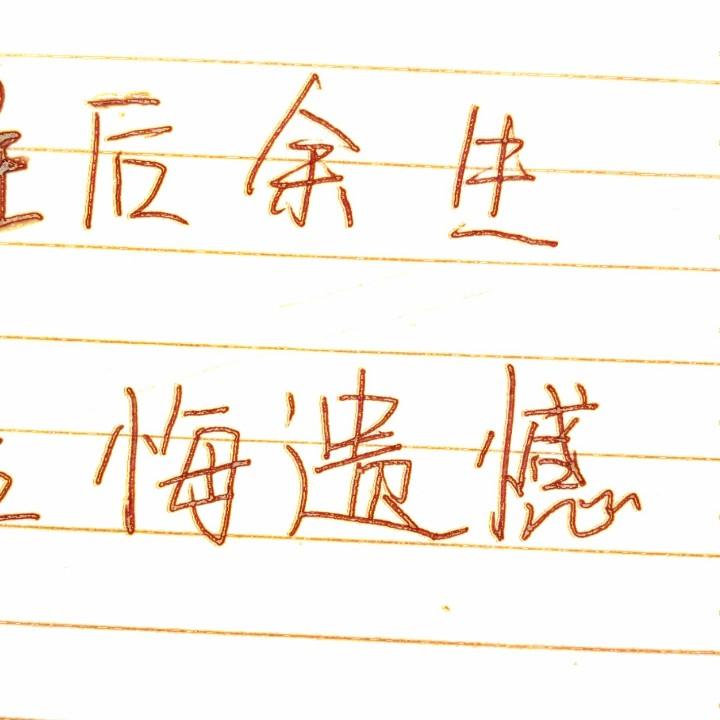 后余生
悔遗憾